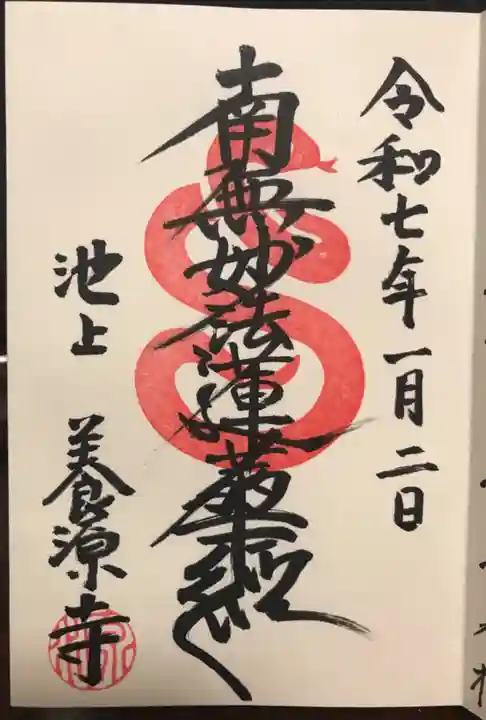 令和七年一月二日
南無妙法蓮華経
池上 養源寺